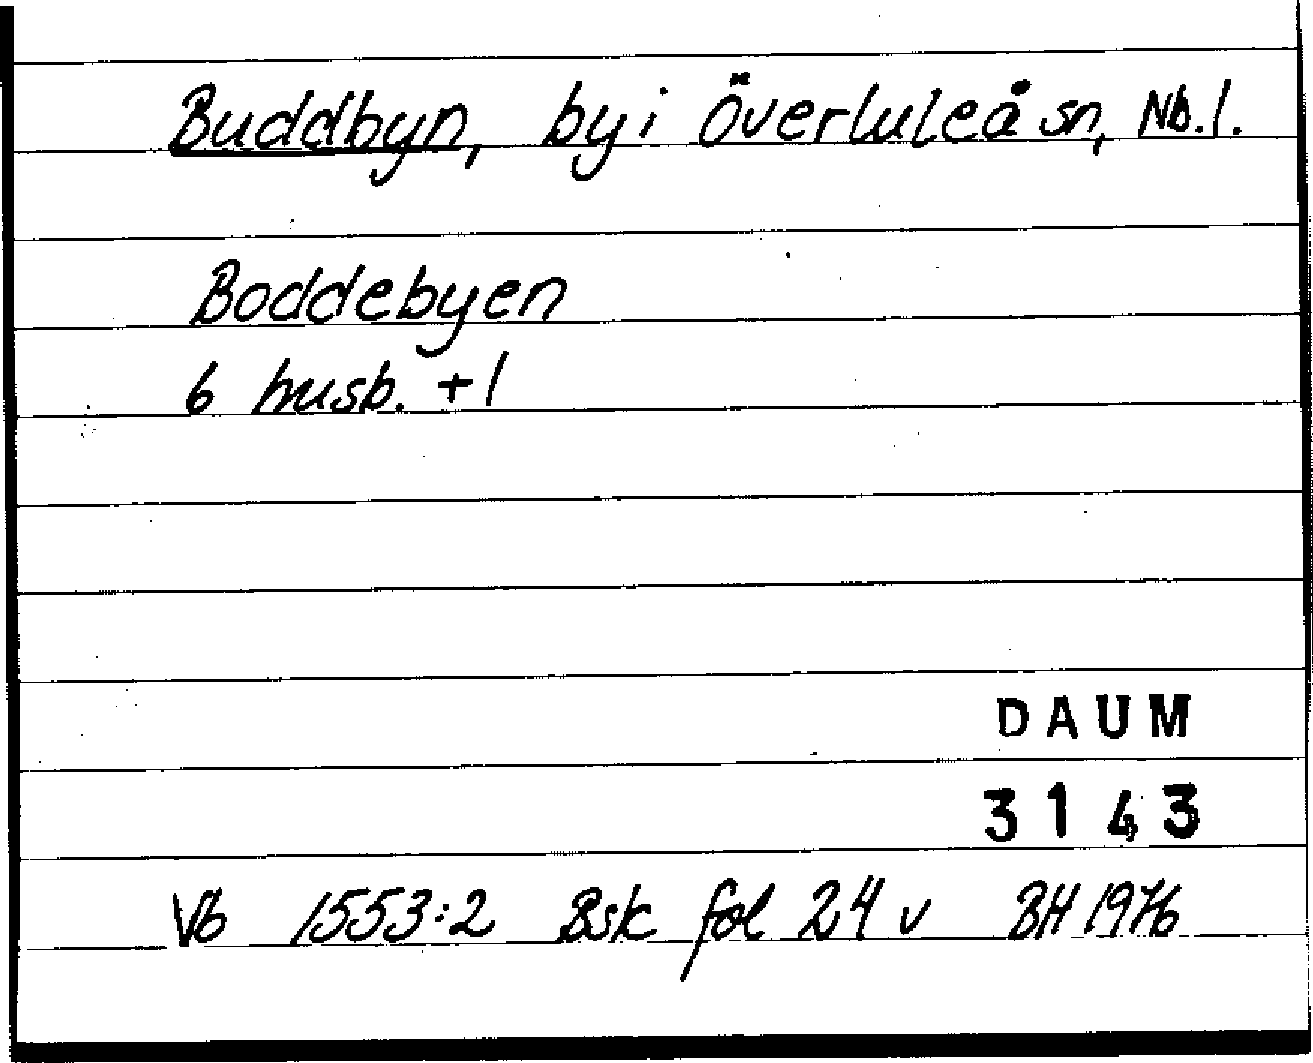 Buddbyn, by i Överluleå sn, Nb.l.
Boddebyen
6 husb. +1
DAUM
3143
Vb 1553:2 Bsk fol 24 v BH 1976